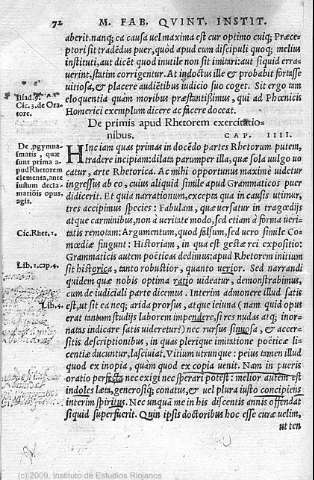 72 M. FAB. QVINT. INSTIT.
aberit.nanq; ea causa vel maxima est cur optimo cuiq; Præce-
ptori sit tradēdus puer, quòd apud eum discipuli quoq; melius
instituti, aut dicēt quod inutile non sit imitari: aut siquid erra-
uerint, statim corrigentur. At indoctus ille & probabit fortasse
vitiosa, & placere auditēibus iudicio suo coget. Sit ergo tam
eloquentia quàm moribus præstantissimus, qui ad Phœnicis
Homerici exemplum dicere ac facere doceat.
Cic. 3. de Ora-
tore.
De primis apud Rhetorem exercitatio-
nibus. CAP. IIII.
De pgymna-
smatis, quæ
sunt prima a-
pud Rhetorem
elementa, ante
iustum decla-
mationis opus,
agit.
HInc iam quas primas in docēdo partes Rhetorum putem,
tradere incipiam: dilata parumper illa, quæ sola vulgo vo
catur, arte Rhetorica. Ac mihi opportunus maximè videtur
ingressus ab eo, cuius aliquid simile apud Grammaticos puer
didicerit. Et quia narrationum, excepta qua in causis vtimur,
tres accipimus species: Fabulam, quæ versatur in tragœdijs
atque carminibus, non à veritate modò, sed etiam à forma veri-
tatis remota: Argumentum, quod falsum, sed uero simile Co-
mœdiæ fingunt: Historiam, in qua est gestæ rei expositio:
Grammaticis autem poëticas dedimus: apud Rhetorem initium
sit historica, tanto robustior, quanto uerior. Sed narrandi
quidem quæ nobis optima ratio uideatur, demonstrabimus,
cum de iudiciali parte dicemus. Interim admonere illud satis
est, ut sit ea neq; arida prorsus, atque ieiuna (nam quid opus
erat tantum studijs laborem impendere, si res nudas atq; inor-
natas indicare satis uideretur) nec rursus sinuosa, & accer-
sitis descriptionibus, in quas plerique imitatione poëticæ li-
centiæ ducuntur, lasciuiat. Vitium utrunque: peius tamen illud
quod ex inopia, quàm quod ex copia uenit. Nam in pueris
oratio perfecta nec exigi nec sperari potest: melior autem est
indoles læta, generosiq; conatus, & uel plura iusto concipiens
interim spiritus. Nec unquā me in his discentis annis offendat
siquid superfuerit. Quin ipsis doctoribus hoc esse curæ uelim,
ut ten
Cic. Rhet. 1.
Lib. 2. cap. 4.
Lib. 4.
(c) 2009. Instituto de Estudios Riojanos